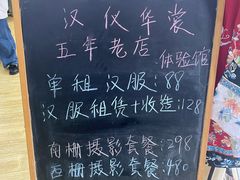 汉仪华裳
五年老店
体验馆
单租汉服:88
汉服租赁+妆造:128
南栅摄影套餐:298
西栅摄影套餐:480